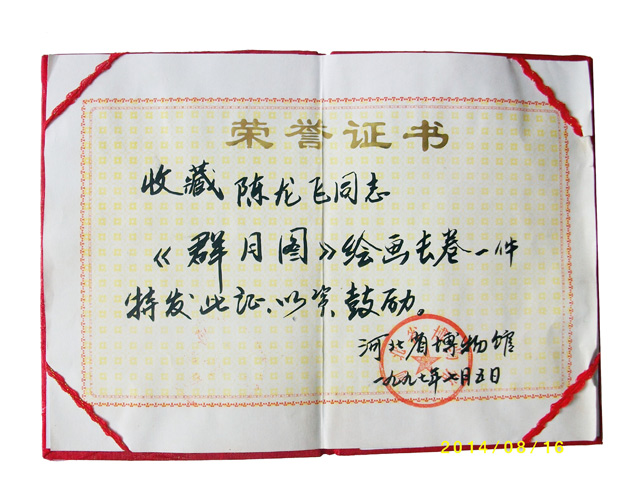 荣誉证书
收藏陈龙飞同志
《群月图》绘画长卷一件
特发此证、以资鼓励。
河北省博物馆
一九九七年七月五日
2014/08/16